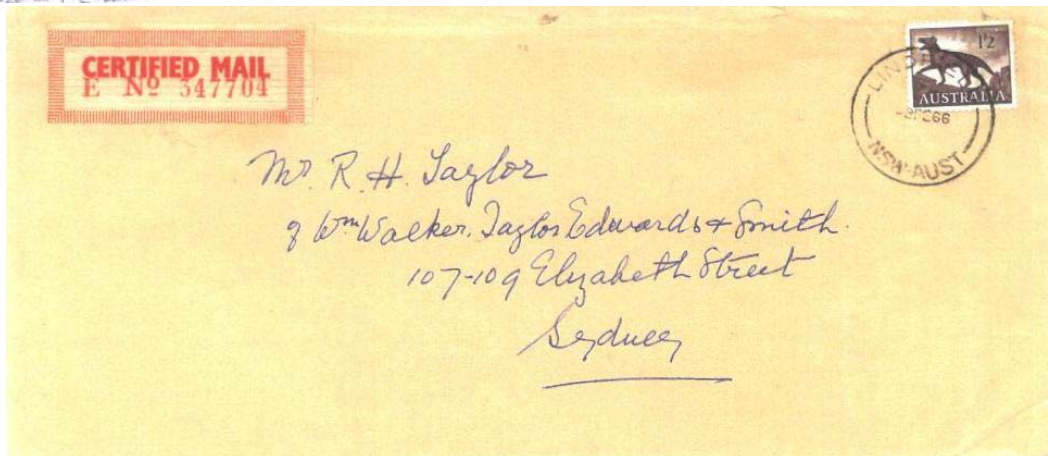 CERTIFIED MAIL
E Nº 347704
1/2
AUSTRALIA
NSW-AUST
Mr. R. H. Taylor
Wm Walker, Taylor Edwards & Smith.
107-109 Elizabeth Street
Sydney